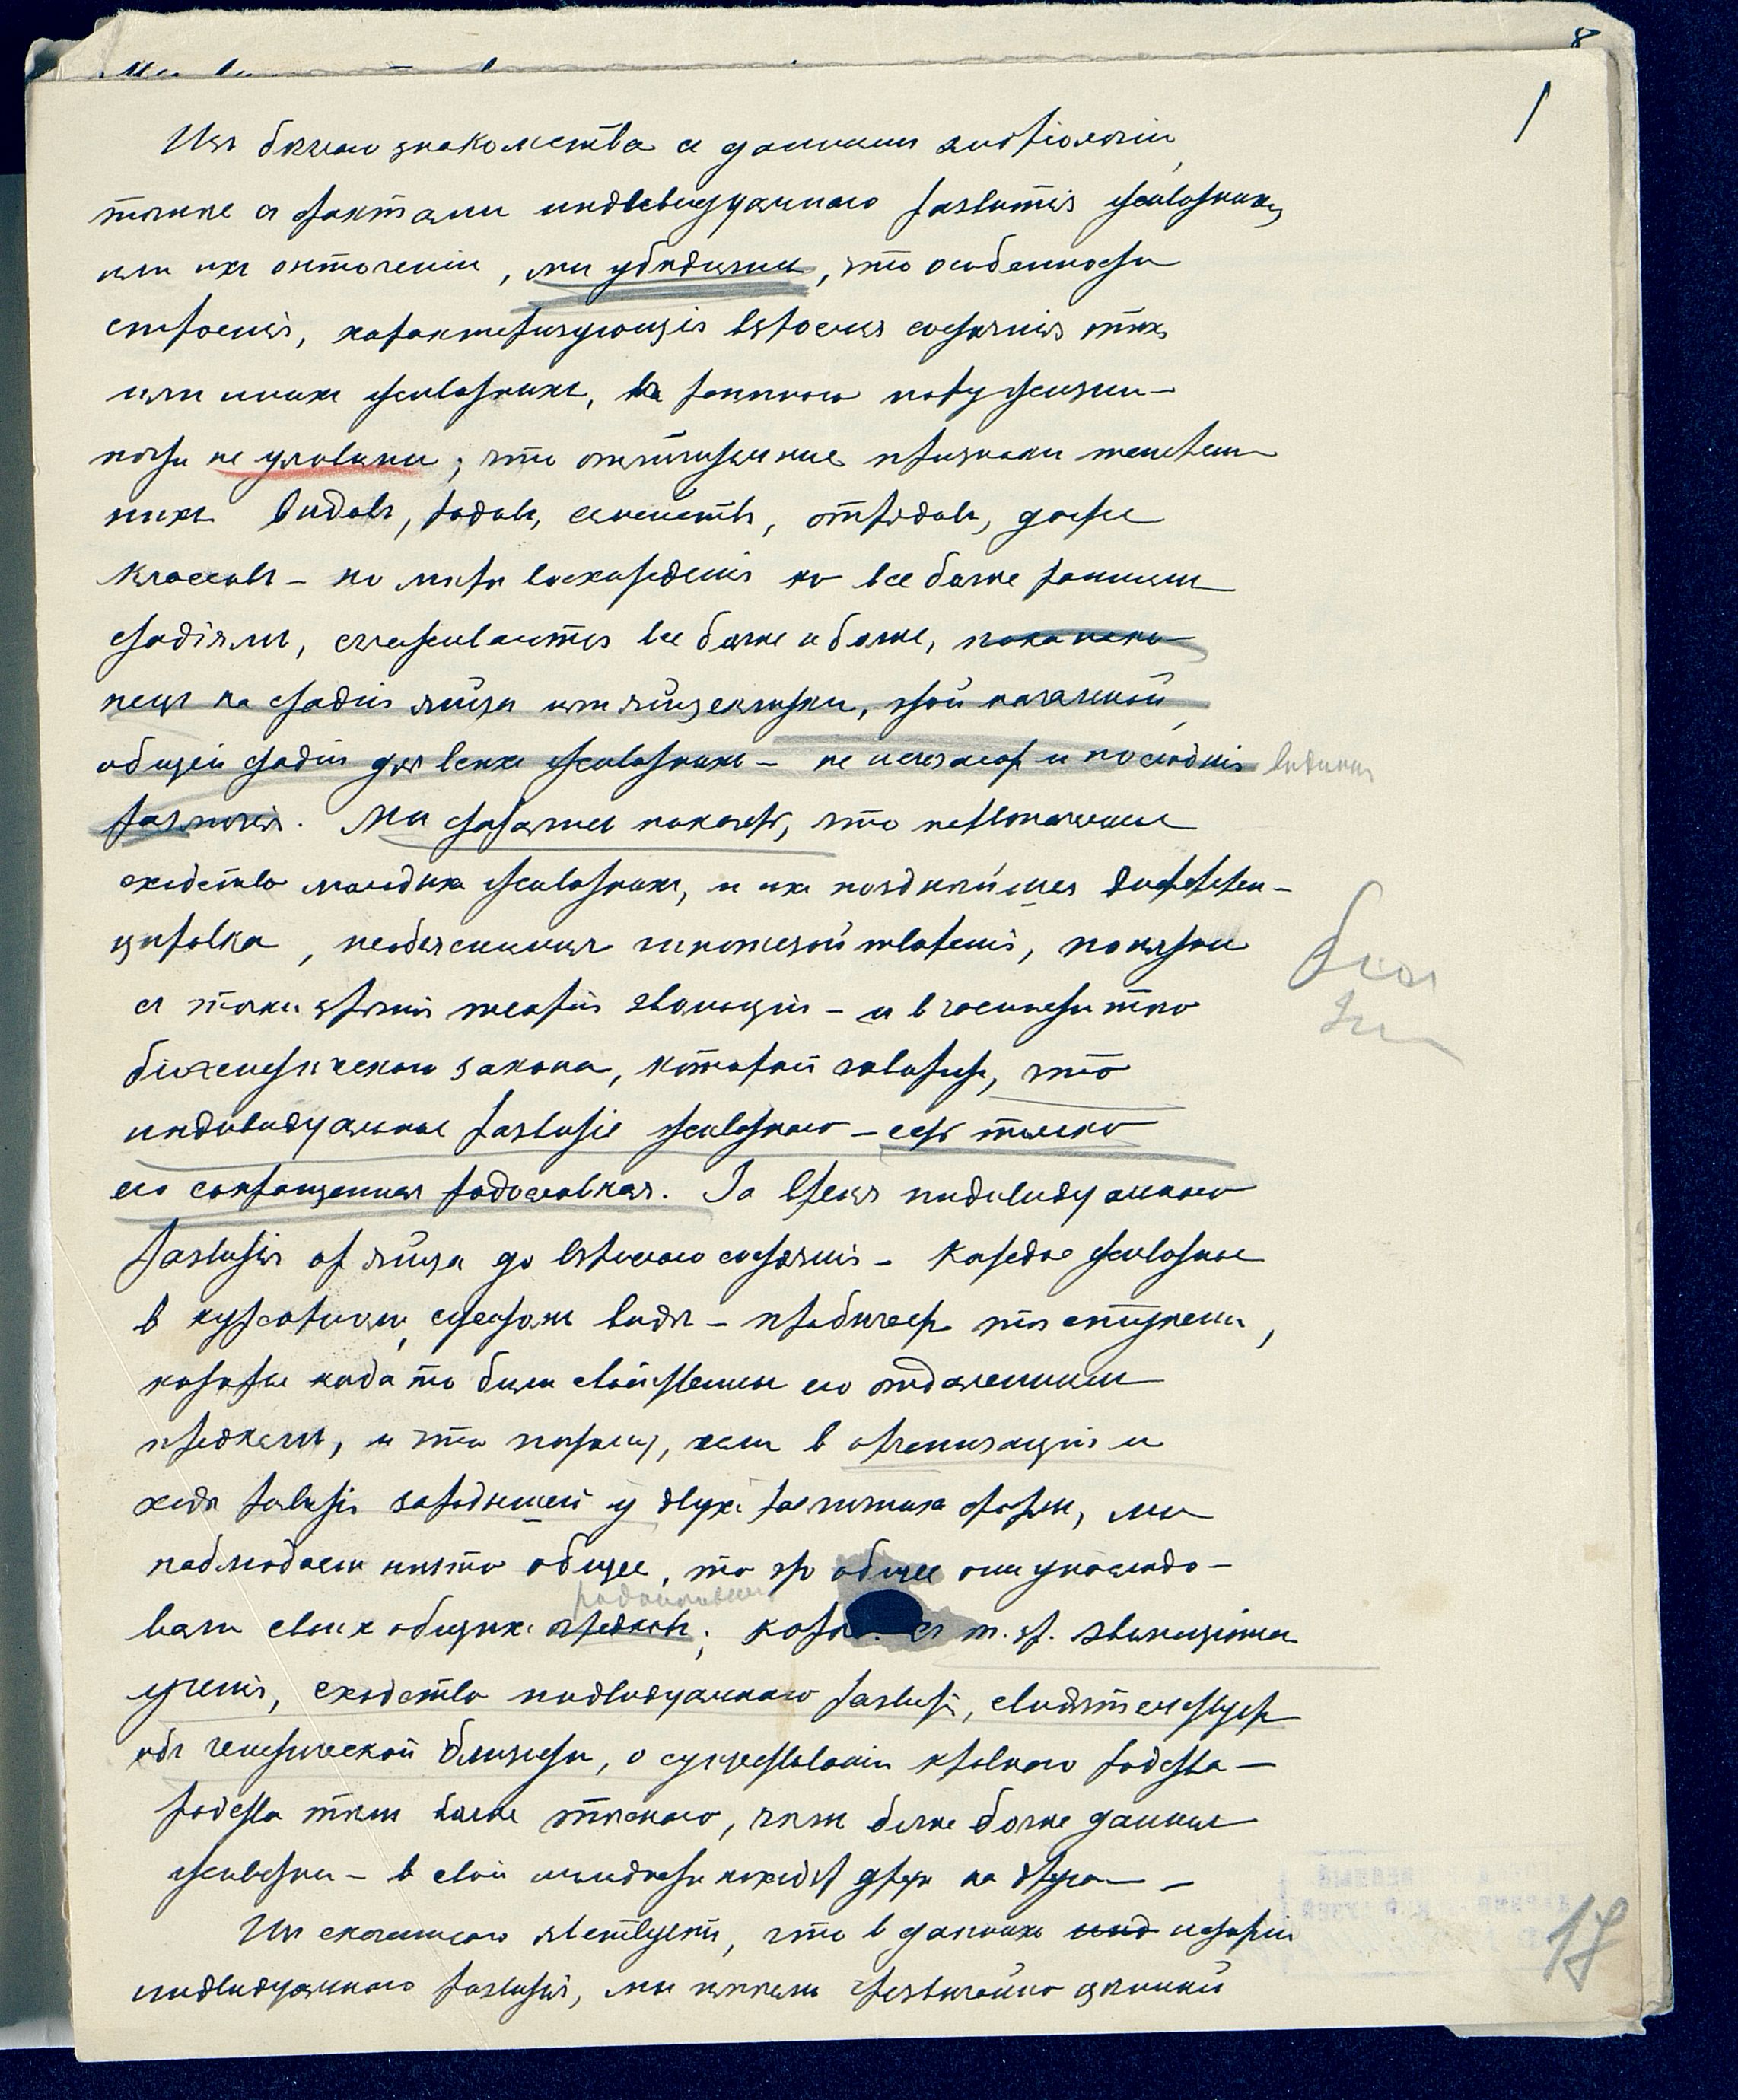 1
Изъ бѣглаго знакомства съ данными эмбріологіи,
точнѣе съ фактами индивидуальнаго развитія животныхъ,
или ихъ онтогеніи, мы убѣдились, что особенности
строенія, характеризующія взрослыя состоянія тѣхъ
или иныхъ животныхъ, въ раннюю пору жизни –
почти не уловимы; что отличительные признаки
видовъ, родовъ, семействъ, отрядовъ, даже
классовъ – по мѣрѣ восхожденія ко все болѣе раннимъ
стадіямъ, сглаживаются все болѣе и болѣе, пока нако-
нецъ на стадіи яйца или яйцеклѣтки, этой начальной
общей стадіи для всѣхъ животныхъ – не исчезаютъ и послѣднія видимыя
различія. Мы старались показать, что первоначальное
сходство молодыхъ животныхъ, и ихъ позднѣйшая дифферен-
цировка, необъяснимыя гипотезой творенія, понятны
съ точки зрѣнія теоріи эволюціи – и въ частности
біогенетическаго закона, который говоритъ, что
индивидуальное развитіе животнаго – есть только
его сокращенная родословная. За время индивидуальнаго
развитія отъ яйца до взрослаго состоянія – каждое животное
в сжатомъ видѣ – пробѣгаетъ тѣ ступени,
которые когда то были свойственны его отдаленнымъ
предкамъ, и что потому, если в организаціи и
ходѣ развитія зародышей у двухъ различныхъ формъ, мы
наблюдаемъ нѣчто общее, то это общее они унаслѣдо-
вали своихъ общихъ предковъ; съ т. зр. эволюціоннаго
ученія, сходство индивидуальнаго развитія, свидѣтельствуетъ
объ генетической близости, о существованіи кровнаго родства –
родства тѣмъ болѣе тѣснаго, чѣмъ болѣе данныя
животныя – в своей молодости походятъ другъ на друга –
Изъ сказаннаго явствуетъ, что в данныхъ исторіи
индивидуальнаго развитія, мы имѣемъ чрезвычайно цѣнный
17